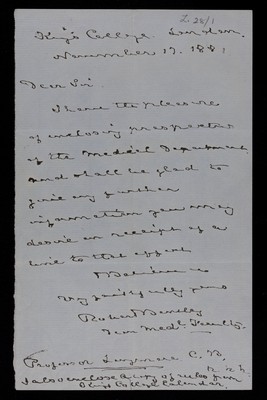 King's College London,
November 17. 18
Dear Sir
I have the pleasure
of enclosing prospectus
of the Medical Department
and shall be glad to
give any further
information you may
desire on receipt of a
line to that effect
Believe me
very faithfully yours
Robert Bentley
Dean Medl. Faculty.
Professor C. B.
I also enclose a copy of rules from
King's College Calendar.